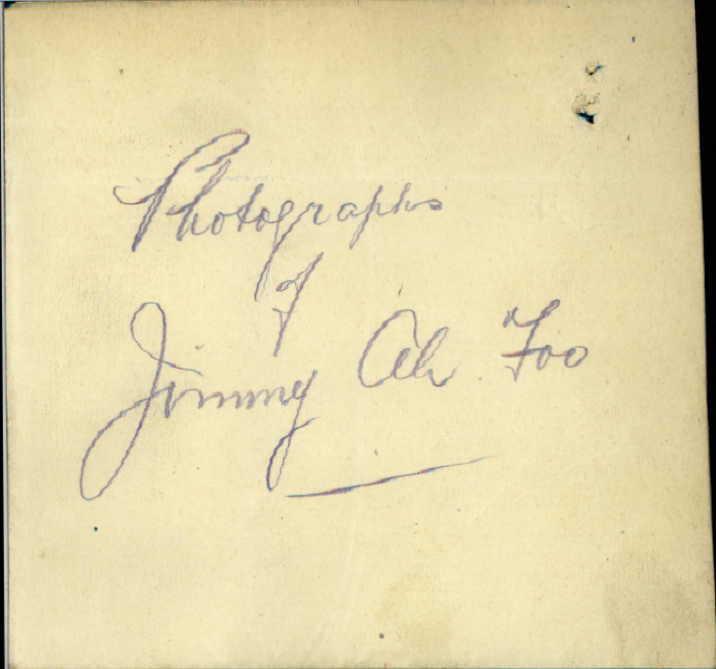 Photographs
of
Jimmy Ah Foo